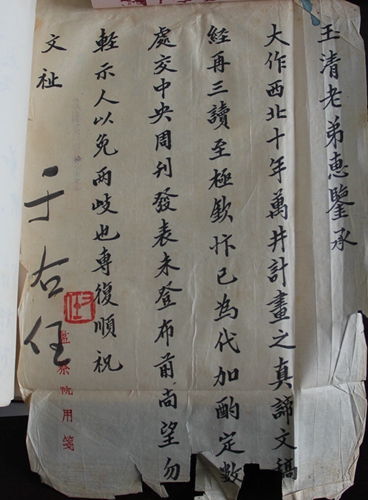 玉清老弟惠鑒承
大作西北十年萬井計畫之真諦文稿
經再三讀至極欽忭已為代加酌定數
處交中央周刊發表未登布前尚望勿
輕示人以免兩歧也專復順祝
文祉
于右任
監察院用箋